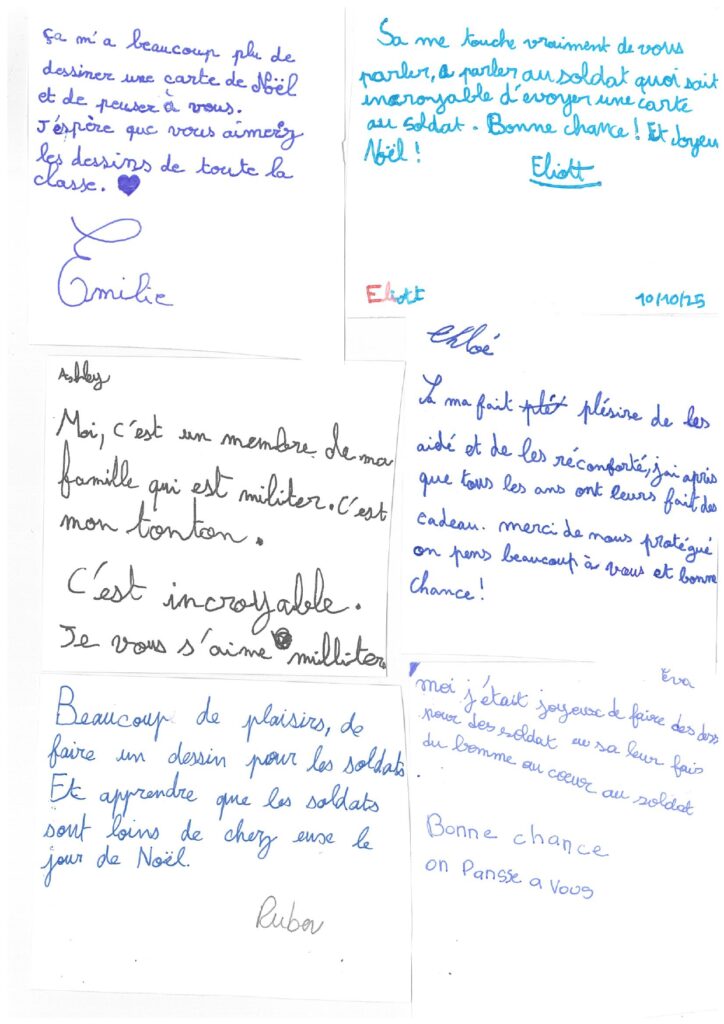 ça m'a beaucoup plu de
dessiner une carte de Noël
et de penser à vous.
J'espère que vous aimerez
les dessins de toute la
classe.
Emilie
Sa me touche vraiment de vous
parler, a parler au soldat quoi sait
incroyable d'évoyer une carte
au soldat. Bonne chance! Et Joyeu
Noël!
Eliott
Eliott
10/10/25
Ashley
Moi, c'est un membre de ma
famille qui est militer. C'est
mon tonton.
C'est incroyable.
Je vous s'aime milliter
Chloé
Sa ma fait plésire de les
aidé et de les réconforté, j'ai apris
que tous les ans ont leurs fait des
cadeau. merci de nous protégué
on pens beaucoup à vous et bonne
chance!
Beaucoup de plaisirs, de
faire un dessin pour les soldats
Et apprendre que les soldats
sont loins de chez euse le
jour de Noël.
Ruben
Eva
moi j'était joyeuse de faire des dess
pour des soldat au sa leur fais
du bomme au coeur au soldat
Bonne chance
on Pansse a Vous